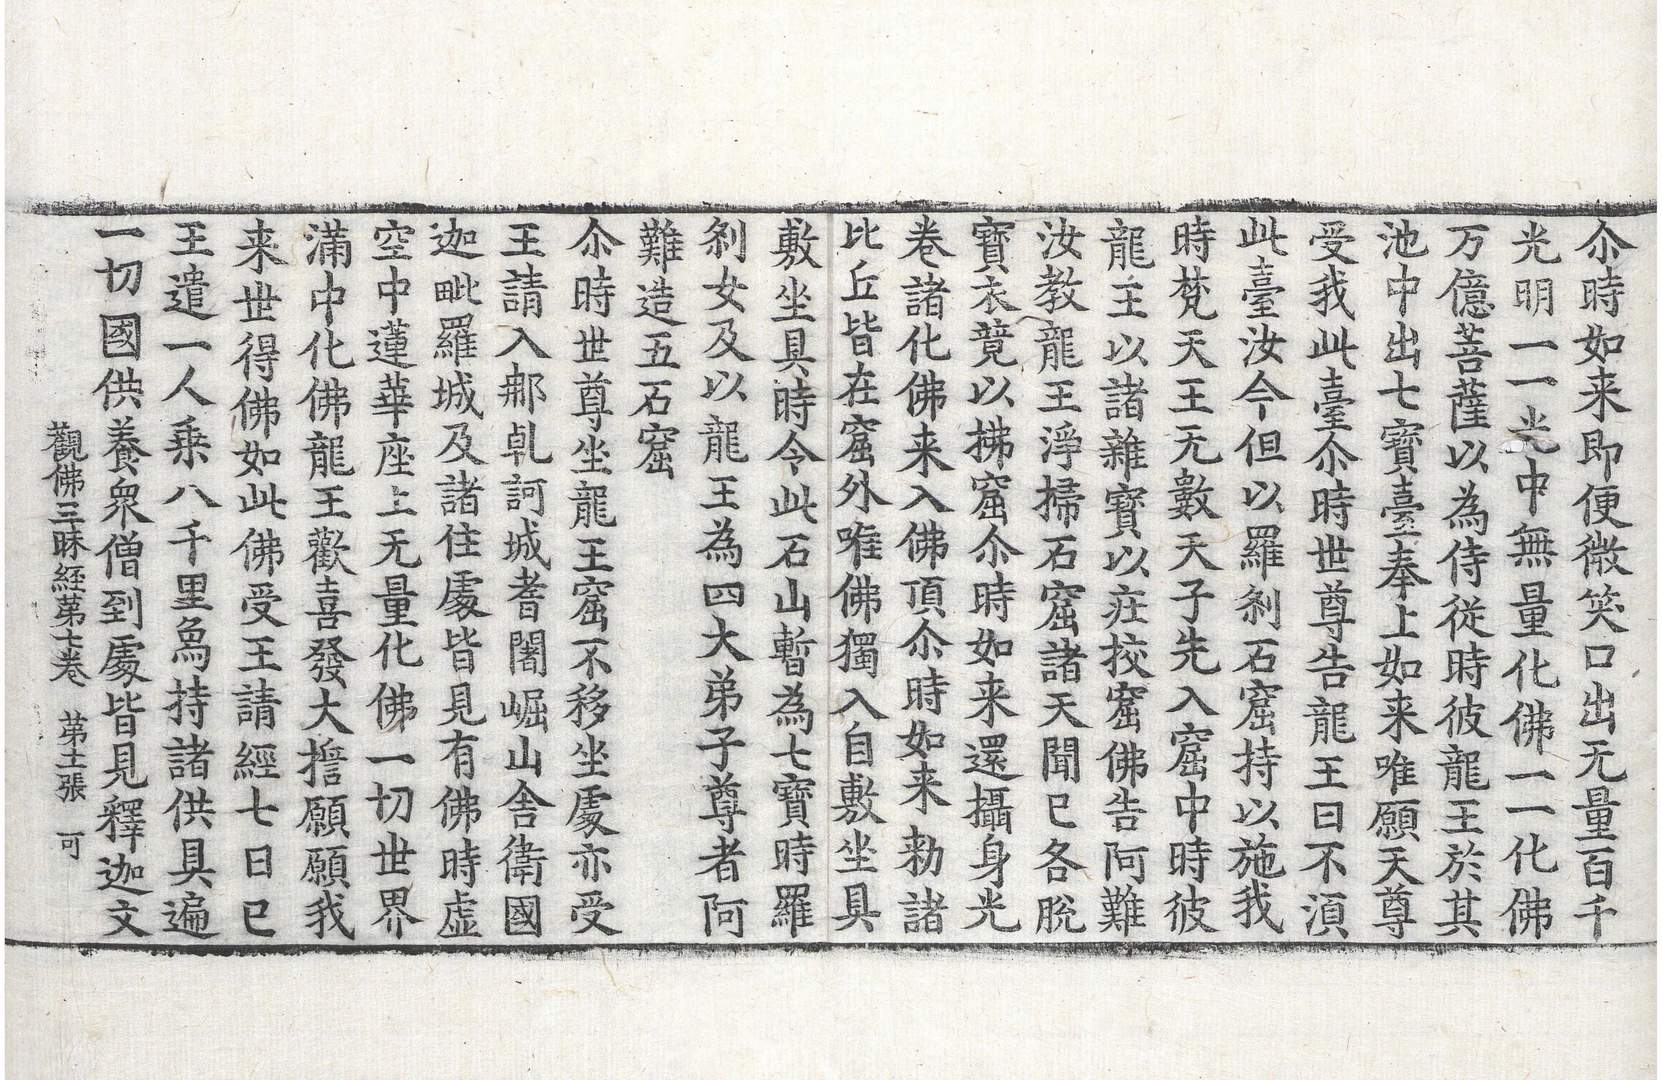 尒時如来即便微笑口出无量百千
光明一一光中無量化佛一一化佛
万億菩薩以為侍從時彼龍王於其
池中出七寶臺奉上如来唯願天尊
受我此臺尒時世尊告龍王曰不湏
此臺汝今但以羅刹石窟持以施我
時梵天王无數天子先入窟中時彼
龍王以諸雜寶以莊挍窟佛告阿難
汝教龍王淨掃石窟諸天聞已各脫
寶衣竟以拂窟尒時如来還攝身光
卷諸化佛来入佛頂尒時如来勑諸
比丘皆在窟外唯佛獨入自敷坐具
敷坐具時令此石山暫為七寶時羅
刹女及以龍王為四大弟子尊者阿
難造五石窟
尒時世尊坐龍王窟不移坐處亦受
王請入那乹訶城耆闍崛山舍衛國
迦毗羅城及諸住處皆見有佛時虛
空中蓮華座上无量化佛一切世界
滿中化佛龍王歡喜發大擔願願我
来世得佛如此佛受王請經七日已
王遣一人乗八千里烏持諸供具遍
一切國供養衆僧到處皆見釋迦文
觀佛三昧經苐七卷　苐十二張　可